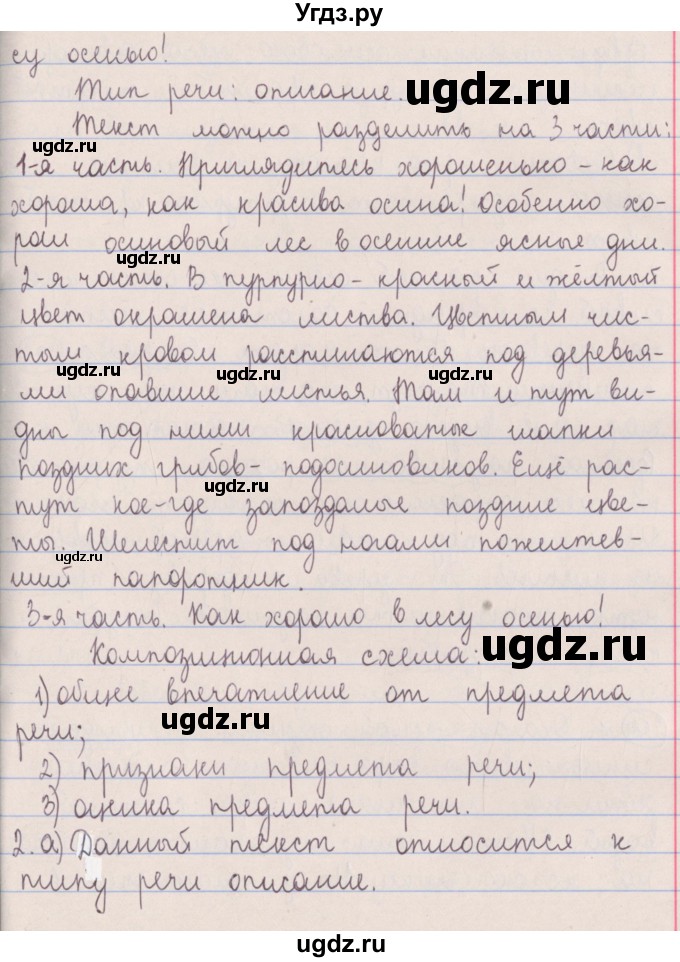 Угдз.ру
су осенью!
Тип речи: описание.
ugdz.ru
Текст можно разделить на 3 части:
1-я часть. Приглядитесь хорошенько - как
ugdz.ru
хороша, как красива осина! Особенно хо-
рош осиновый лес в осенние ясные дни.
ugdz.ru
2-я часть. В пурпурно-красный и жёлтый
цвет окрашена листва. Цветным чис-
тым ковром расстилаются под деревья-
ugdz.ru
ми опавшие листья. Там и тут вид-
ugdz.ru ugdz.ru
ны под ними красноватые шапки
поздних грибов-подосиновиков. Ещё рас-
тут кое-где запоздалые поздние цве-
ugdz.ru
ты. Шелестит под ногами пожелтев-
ugdz.ru
ший папоротник.
3-я часть. Как хорошо в лесу осенью!
Композиционная схема:
ugdz.ru
1) общее впечатление от предмета
речи;
ugdz.ru
2) признаки предмета речи;
3) оценка предмета речи.
2. а) Данный текст относится к
типу речи описание.
ugdz.ru
ugdz.ru